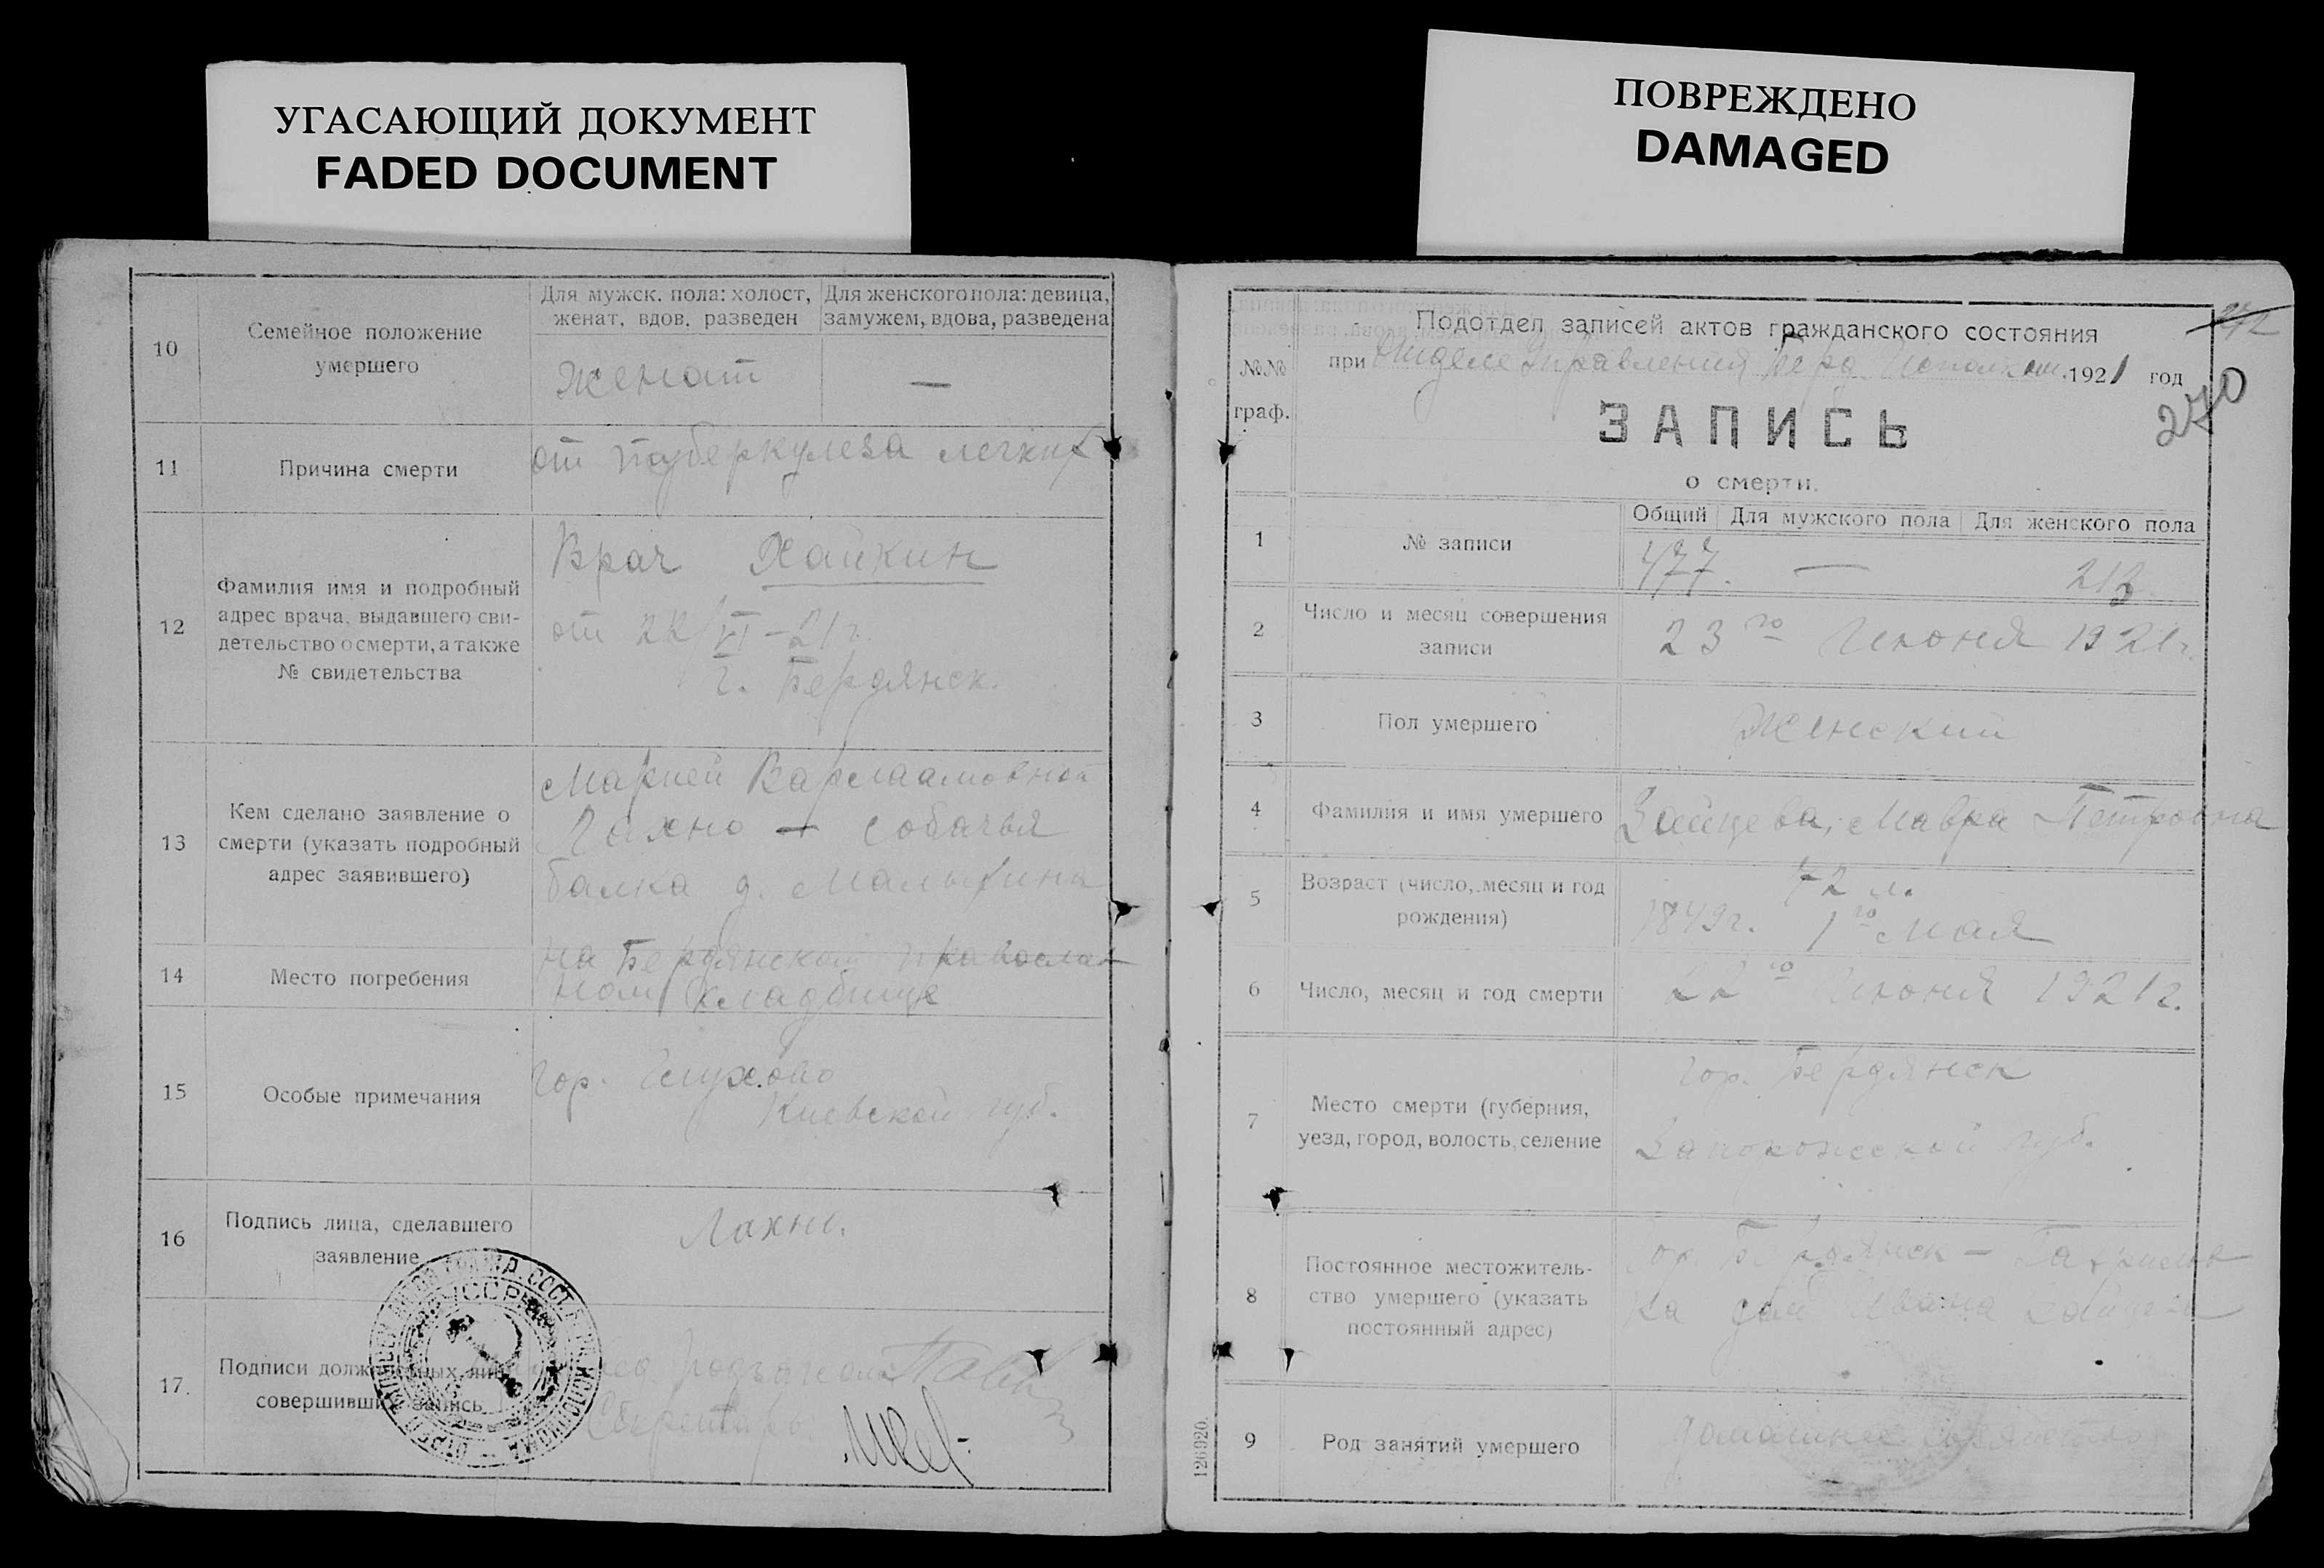 УГАСАЮЩИЙ ДОКУМЕНТ
FADED DOCUMENT
ПОВРЕЖДЕНО
DAMAGED
10
Семейное положение
умершего
Для мужск. пола: холост,
женат, вдов, разведен
Для женского пола: девица,
замужем, вдова, разведена
Женат
—
11
Причина смерти
от туберкулеза легких
12
Фамилия имя и подробный
адрес врача, выдавшего сви-
детельство о смерти, а также
№ свидетельства
Врач Хайкин
от 22/VI–21 г.
г. Бердянск.
13
Кем сделано заявление о
смерти (указать подробный
адрес заявившего)
Марией Варлаамовной
Лахно — собачья
балка д. Малыхина
14
Место погребения
на Бердянском православ-
ном кладбище
15
Особые примечания
гор.
Киевской губ.
16
Подпись лица, сделавшего
заявление
Лахно.
17.
Подписи должностных лиц
совершивших запись
Секретарь
Подотдел записей актов гражданского состояния
№№
граф.
при Отделе Управления Берд. Исполком. 1921 год
272
270
ЗАПИСЬ
о смерти.
1
№ записи
Общий
Для мужского пола
Для женского пола
477.
—
213
2
Число и месяц совершения
записи
23го Июня 1921г.
3
Пол умершего
Женский
4
Фамилия и имя умершего
Зайцева, Мавра Петровна
5
Возраст (число, месяц и год
рождения)
72 л.
1849г. 1го Мая
6
Число, месяц и год смерти
22го Июня 1921г.
7
Место смерти (губерния,
уезд, город, волость, селение
гор. Бердянск
Запорожской губ.
8
Постоянное местожитель-
ство умершего (указать
постоянный адрес)
гор. Бердянск –
дом Ивана
9
Род занятий умершего
домашнее
126920.